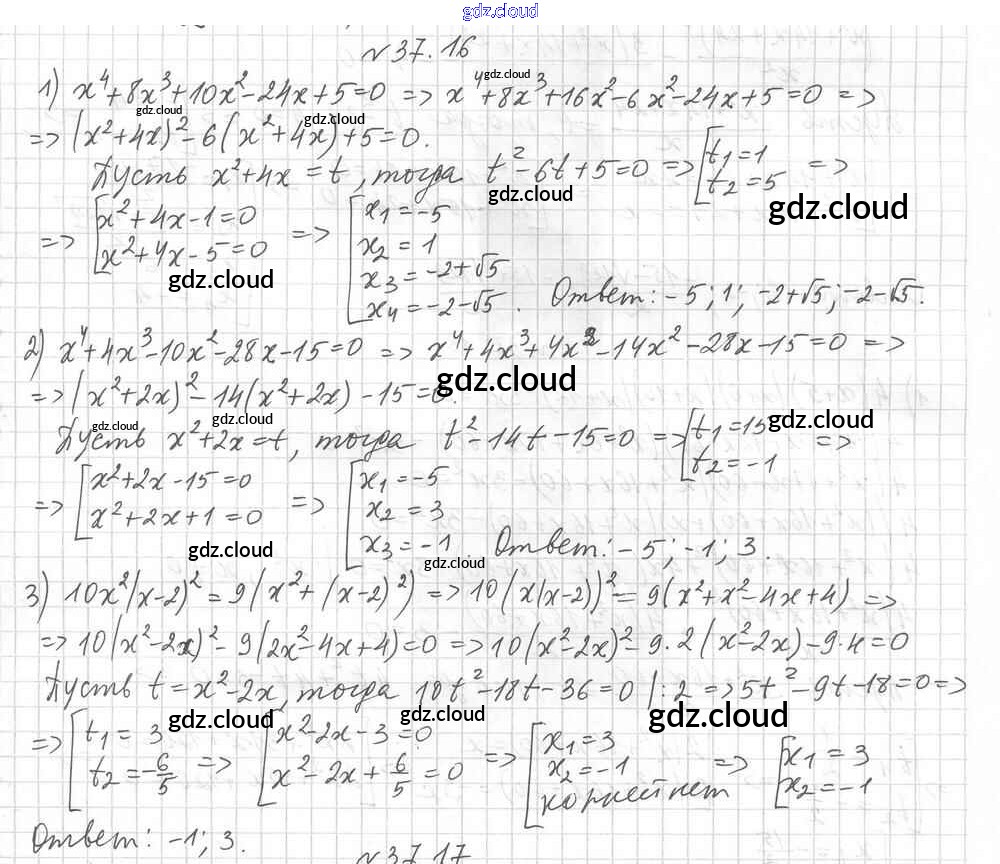 gdz.cloud
№37.16
1) x⁴+8x³+10x²-24x+5=0 => x⁴+8x³+16x²-6x²-24x+5=0 =>
=> (x²+4x)²-6(x²+4x)+5=0.
Пусть x²+4x=t, тогда t²-6t+5=0 => [t₁=1 t₂=5 =>
=> [x²+4x-1=0 x²+4x-5=0 => [x₁=-5 x₂=1 x₃=-2+√5 x₄=-2-√5. Ответ: -5; 1; -2+√5; -2-√5.
2) x⁴+4x³-10x²-28x-15=0 => x⁴+4x³+4x²-14x²-28x-15=0 =>
=> (x²+2x)²-14(x²+2x)-15=0.
Пусть x²+2x=t, тогда t²-14t-15=0 => [t₁=15 t₂=-1 =>
=> [x²+2x-15=0 x²+2x+1=0 => [x₁=-5 x₂=3 x₃=-1. Ответ: -5; -1; 3.
3) 10x²(x-2)²=9(x²+(x-2)²) => 10(x(x-2))²=9(x²+x²-4x+4) =>
=> 10(x²-2x)²-9(2x²-4x+4)=0 => 10(x²-2x)²-9·2(x²-2x)-9·4=0
Пусть t=x²-2x, тогда 10t²-18t-36=0 |:2 => 5t²-9t-18=0 =>
=> [t₁=3 t₂=-6/5 => [x²-2x-3=0 x²-2x+6/5=0 => [x₁=3 x₂=-1 корней нет => [x₁=3 x₂=-1
Ответ: -1; 3.
№37.17